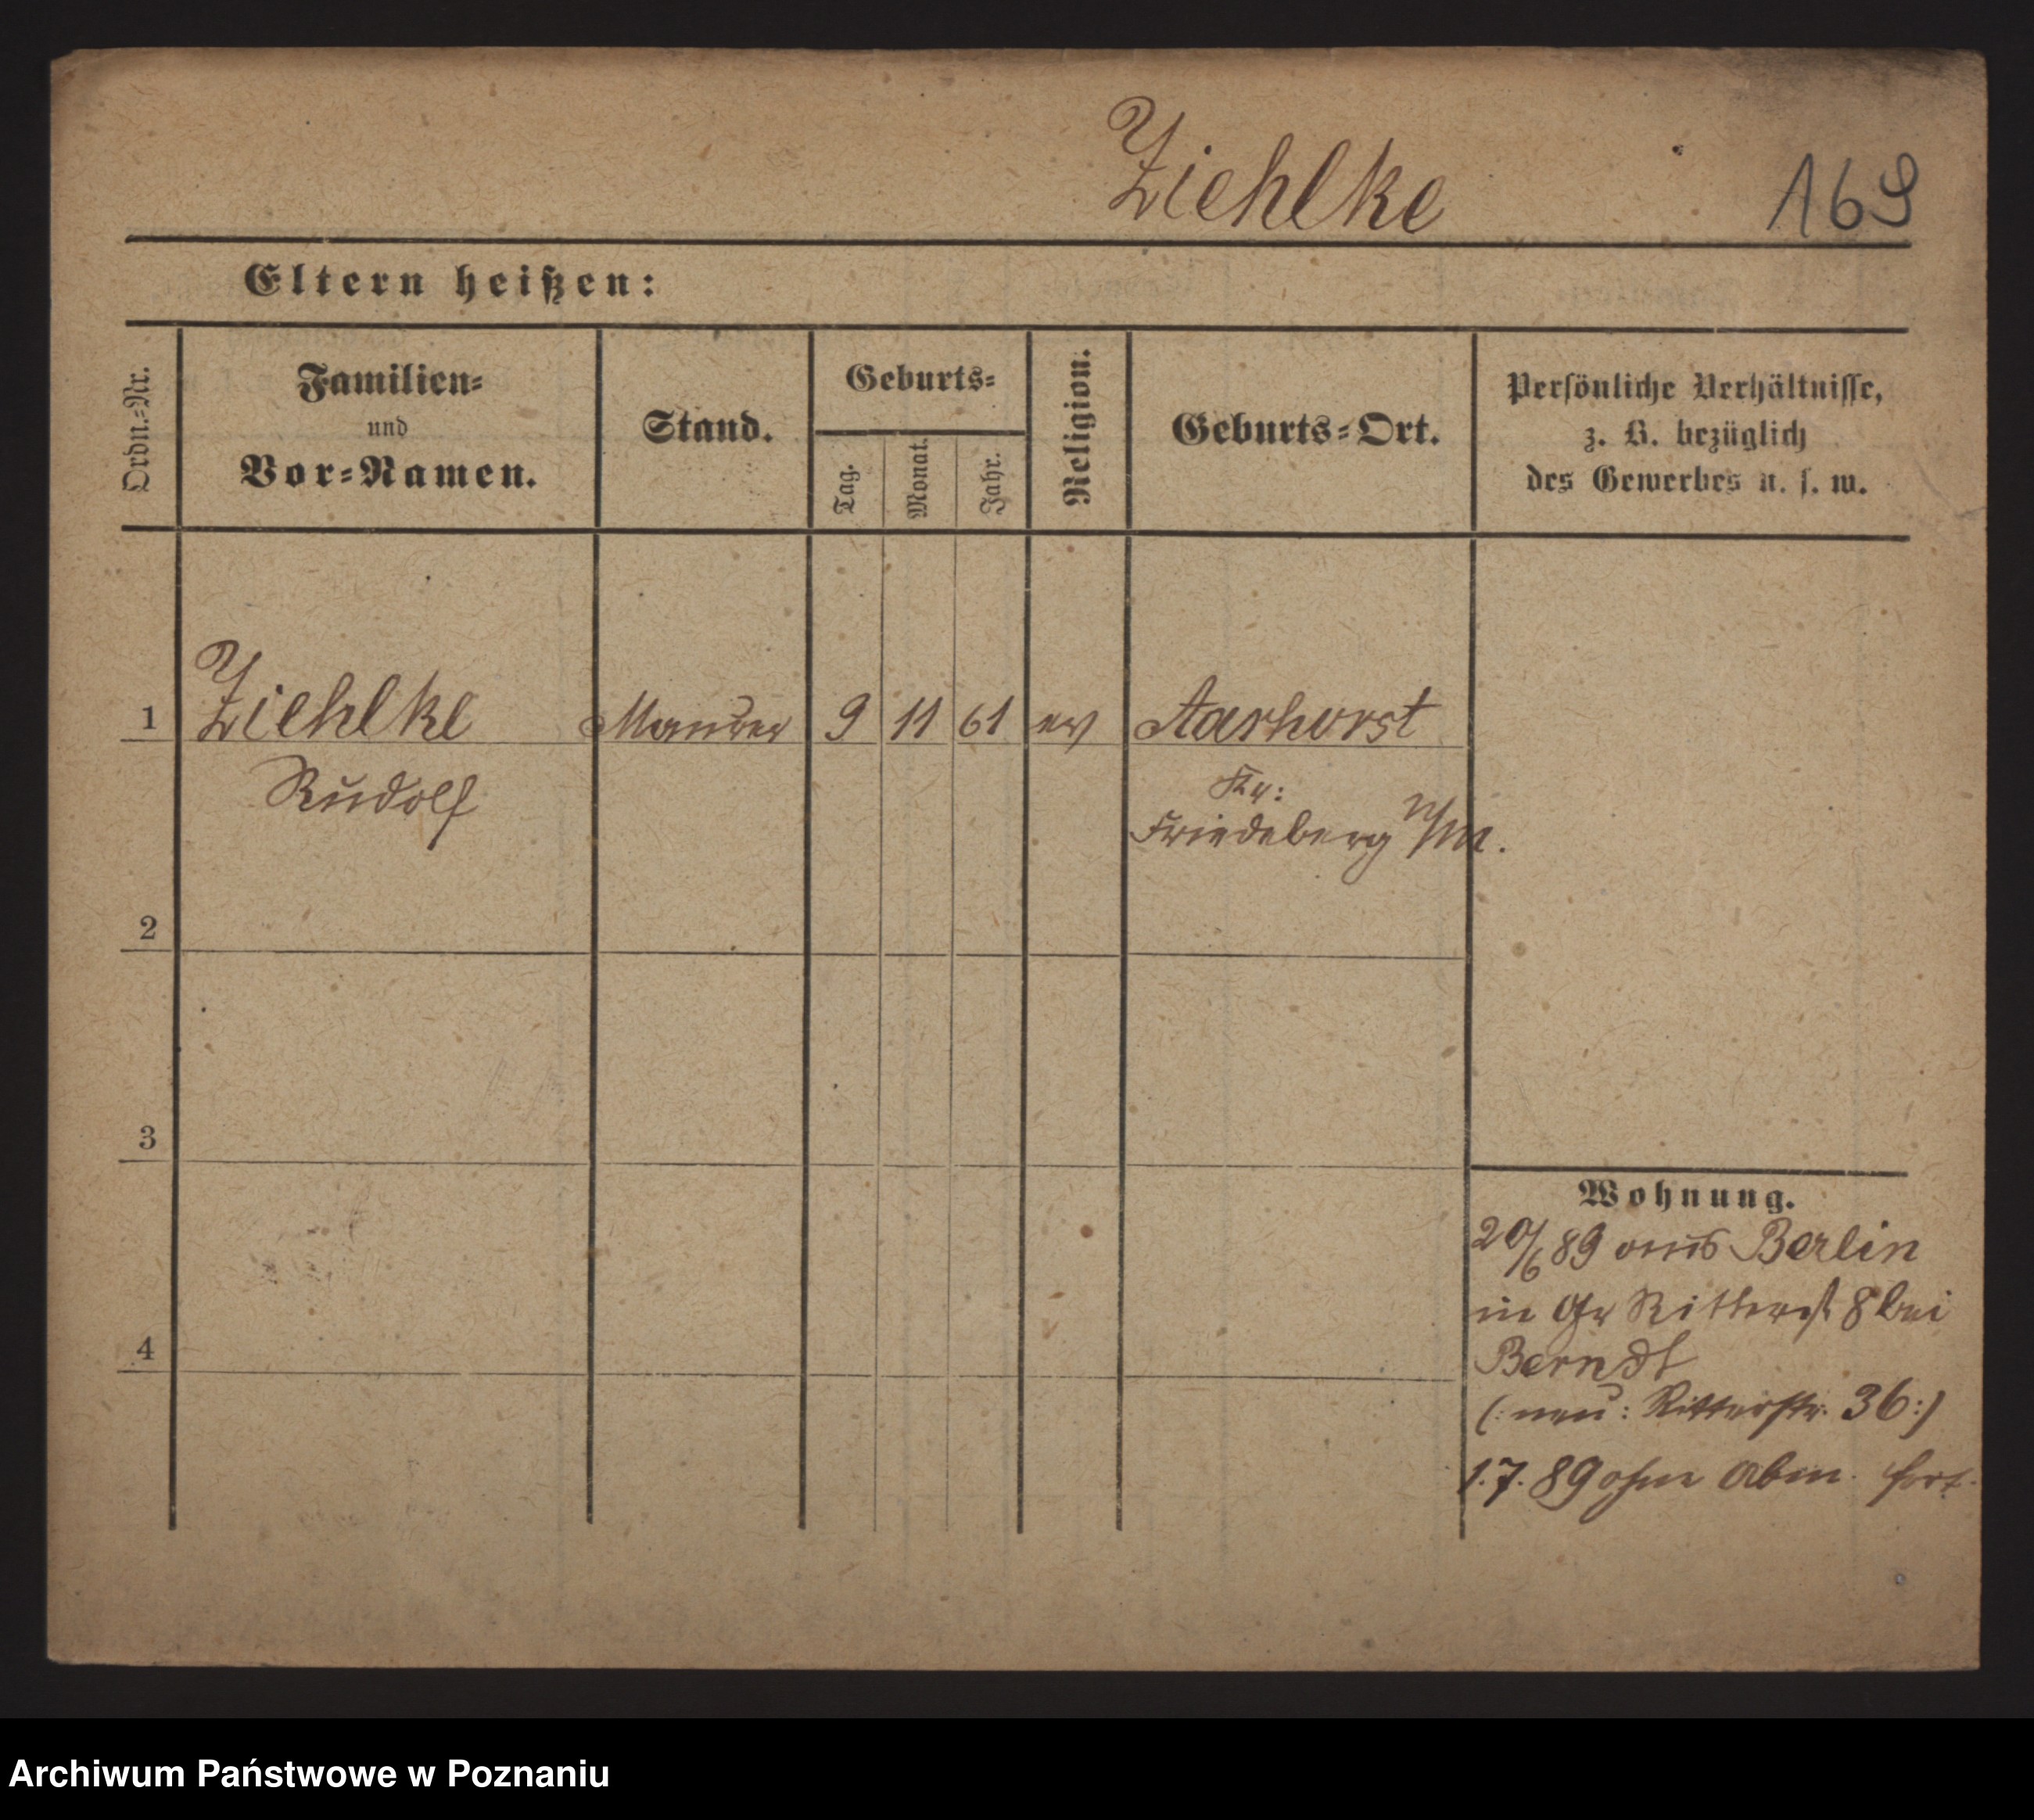 Ziehlke 169
Eltern heißen:
Ordn.=Nr.
Familien=
und
Vor=Namen.
Stand.
Geburts=
Tag.
Monat.
Jahr.
Religion.
Geburts=Ort.
Persönliche Verhältnisse,
z. B. bezüglich
des Gewerbes u. s. w.
1 Ziehlke Maurer 9 11 61 ev
Rudolf
Kr:
Friedeberg N/M.
2
3
4
Wohnung.
20/6 89 aus Berlin
in Gr Ritterst 8 bei
Berndt
(: neu: Ritterstr. 36:)
1.7.89 ohne Abm. fort.
Archiwum Państwowe w Poznaniu